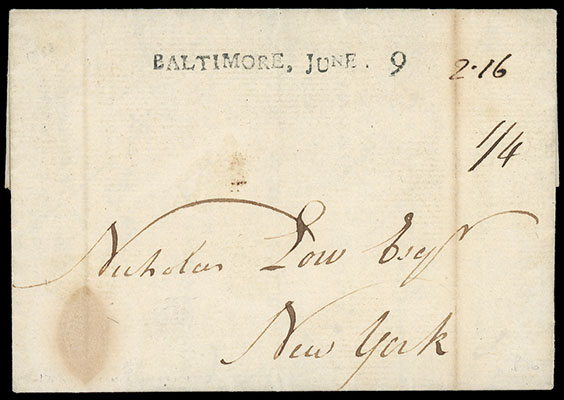 BALTIMORE, JUNE. 9
2.16
1/4
Nicholas Low Esqr
New York